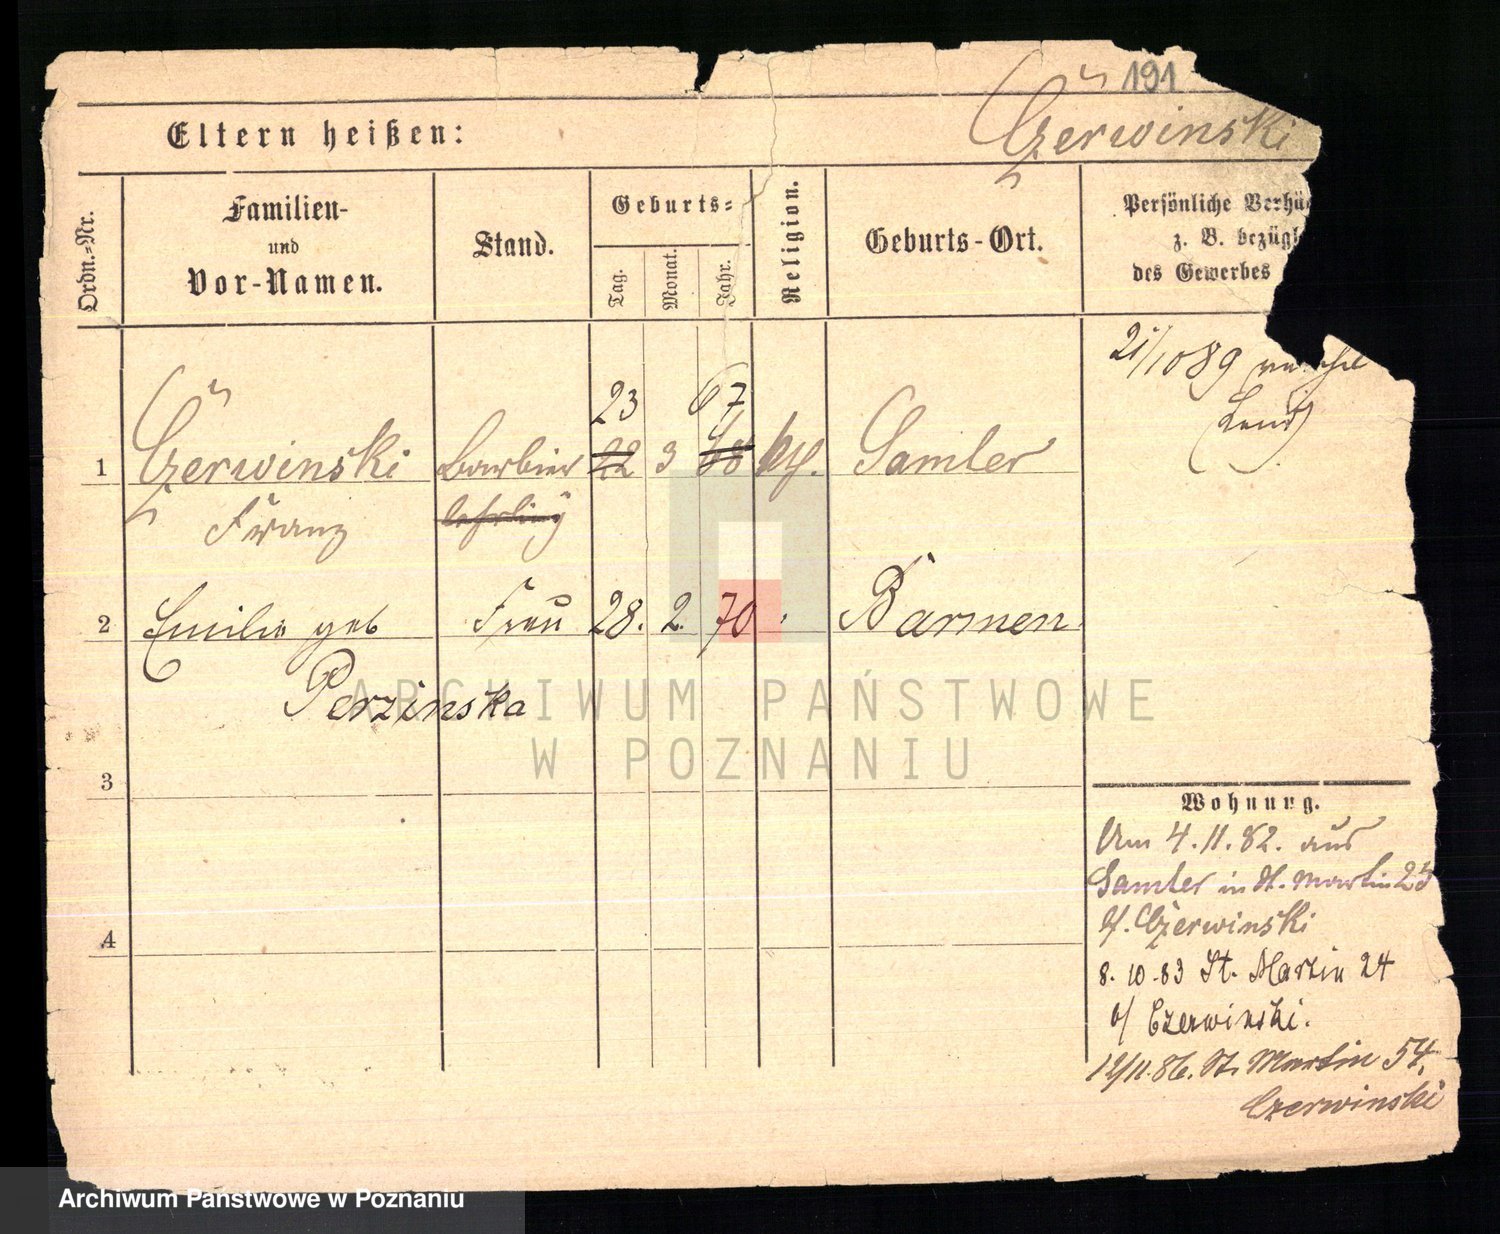 191
Czerwinski
Eltern heißen:
Ordn.-Nr.
Familien-
und
Vor-Namen.
Stand.
Geburts-
Tag.
Monat.
Jahr.
Religion.
Geburts-Ort.
Persönliche Verhä
z. B. bezügl
des Gewerbes
21/10 89
23 67
1 Czerwinski Barbier 22 3 68 Samter
Franz lehrling
2 Emilie geb Frau 28. 2. 70 Barmen
Perzinska
3
4
Wohnung.
Am 4. 11. 82. aus
Samter in St. Martin 23
b/. Czerwinski
8. 10. 83 St. Martin 24
b/ Czerwinski.
12/11. 86. St. Martin 54.
Czerwinski
ARCHIWUM PAŃSTWOWE
W POZNANIU
Archiwum Państwowe w Poznaniu